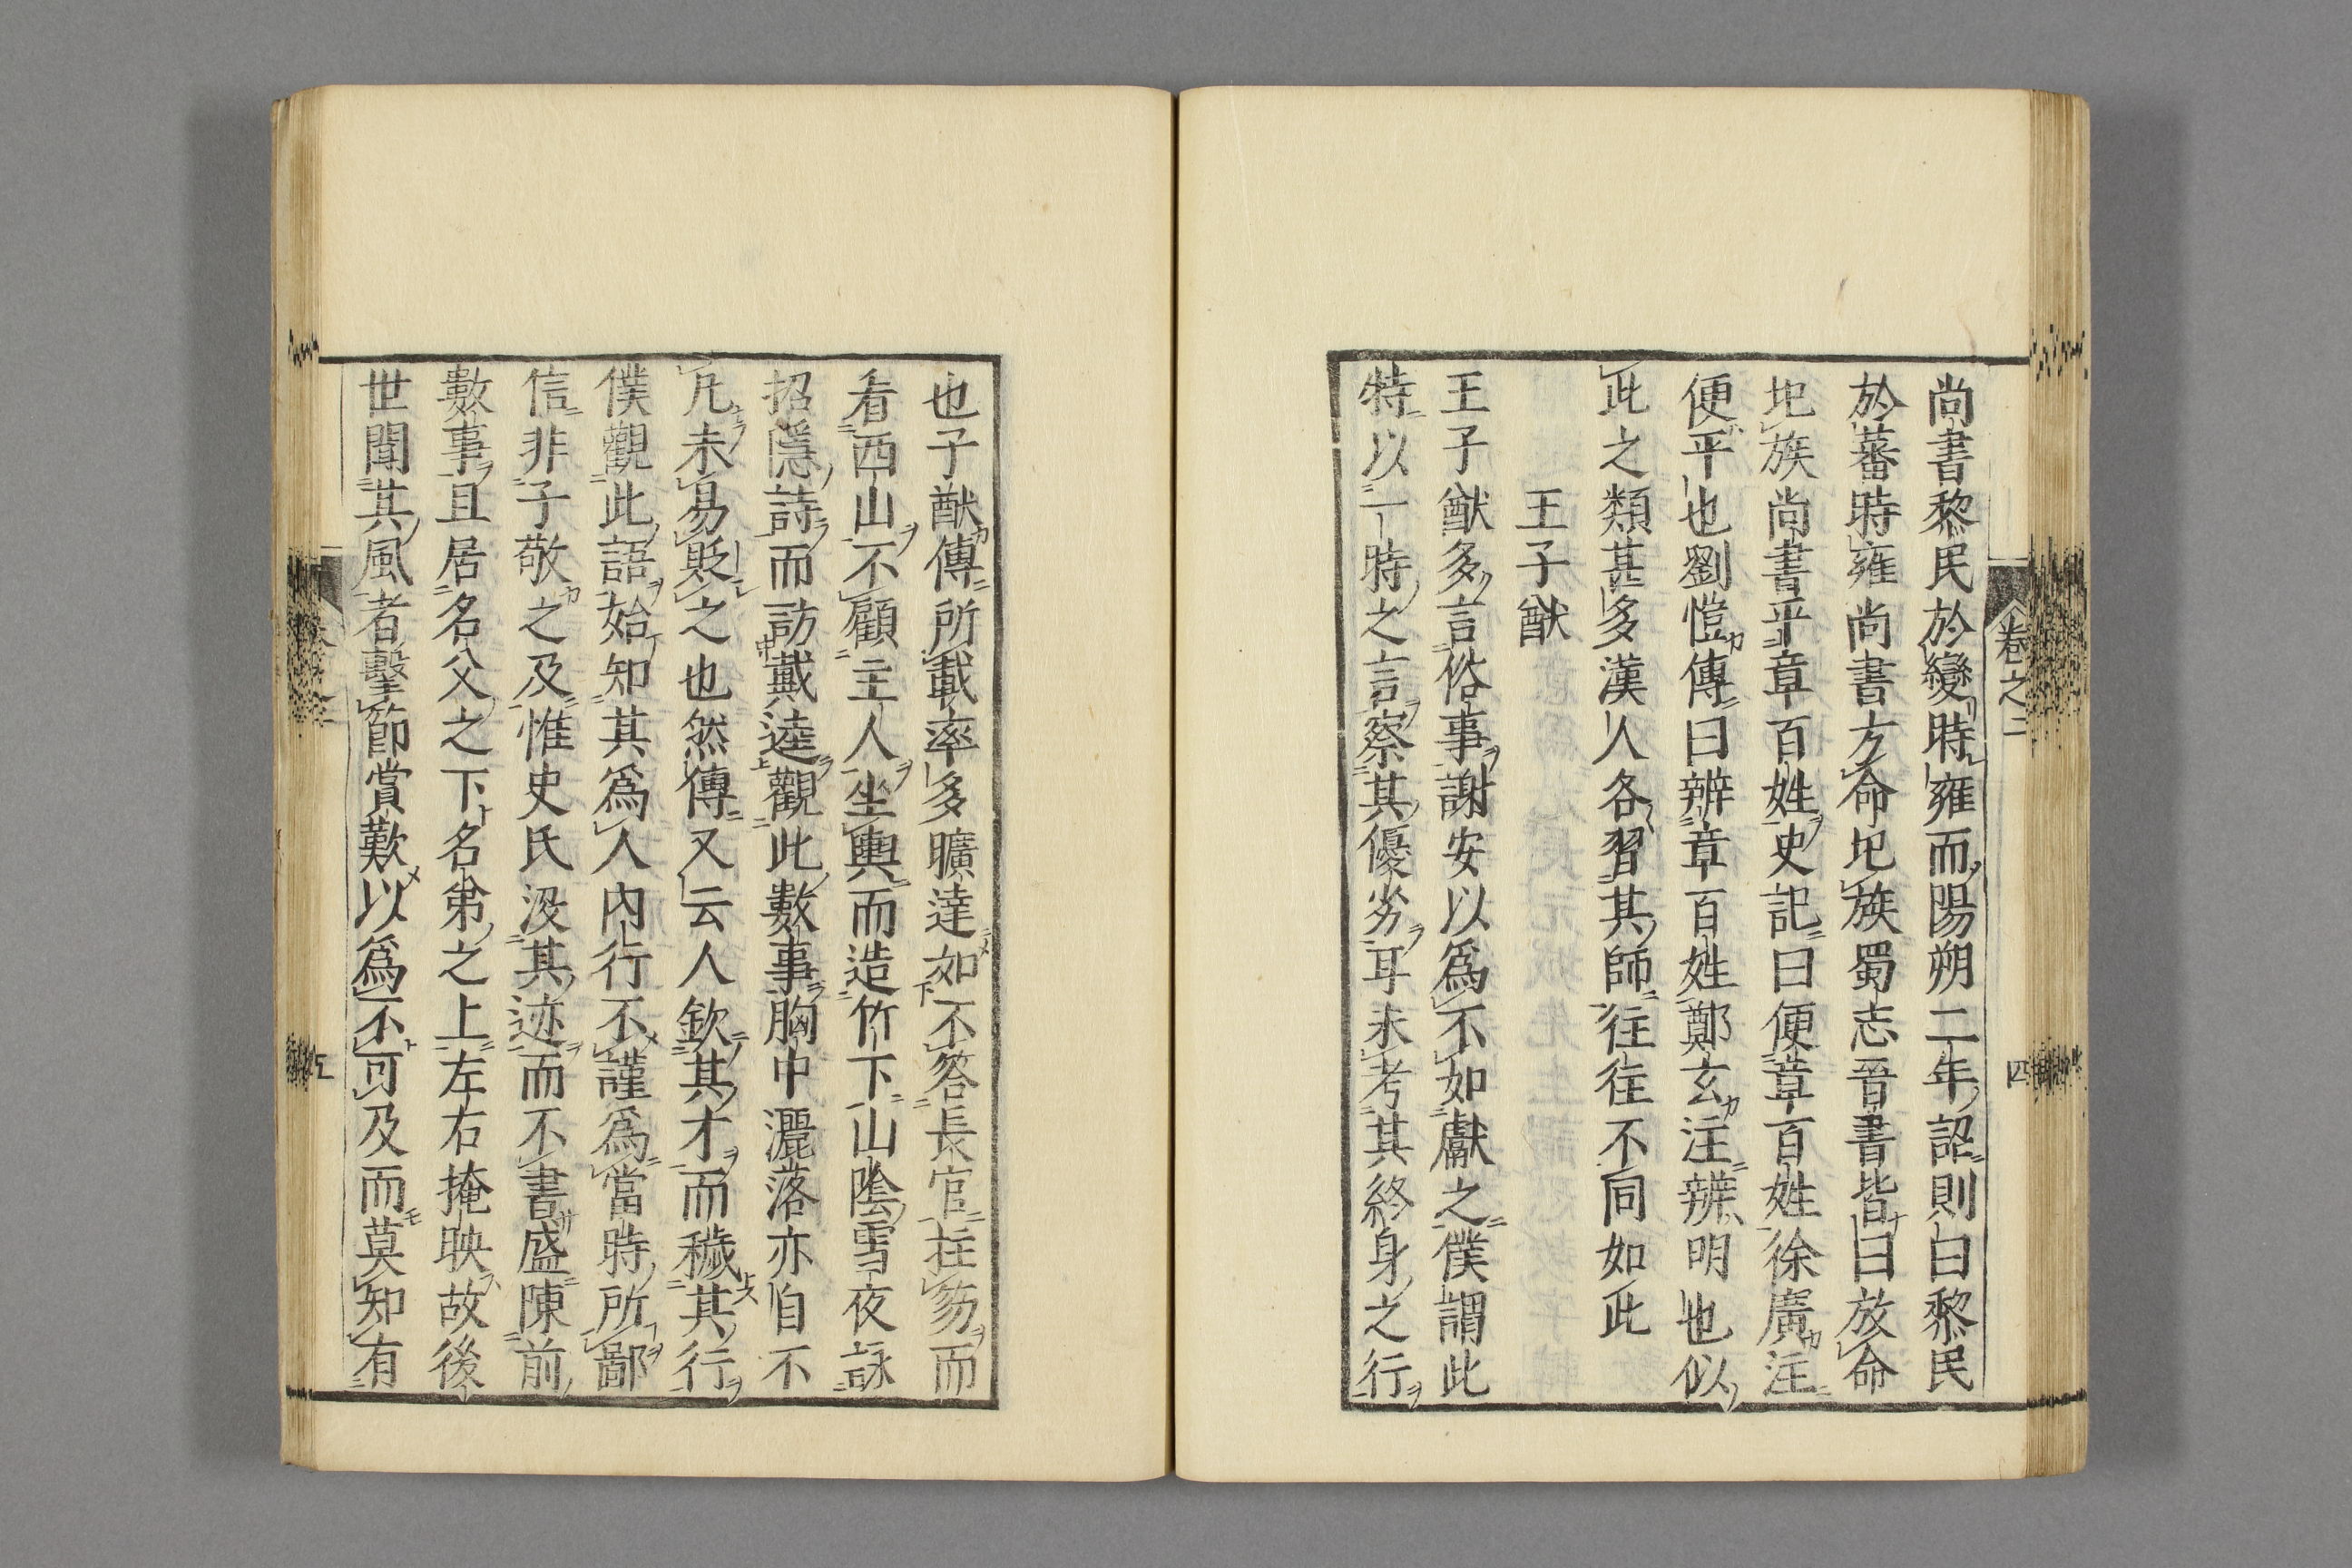 尚書黎民於變時雍而陽朔二年詔則曰黎民
於蕃時雍尚書方命圮族蜀志晉書皆曰放命
圮族尚書平章百姓史記曰便章百姓徐廣注
便平也劉愷傳曰辨章百姓鄭玄注辨明也似
此之類甚多漢人各習其師徃徃不同如此
王子猷
王子猷多言俗事謝安以爲不如獻之僕謂此
特以一時之言察其優劣耳未考其終身之行
也子猷傳所載率多曠達如不答長官拄笏而
看西山不顧主人坐輿而造竹下山陰雪夜詠
招隱詩而訪戴逵觀此數事胸中灑落亦自不
凡未易貶之也然傳又云人欽其才而穢其行
僕觀此語始知其爲人內行不謹爲當時所鄙
信非子敬之及惟史氏沒其迹而不書盛陳前
數事且居名父之下名弟之上左右掩映故後
世聞其風者擊節賞歎以爲不可及而莫知有
卷之二
四